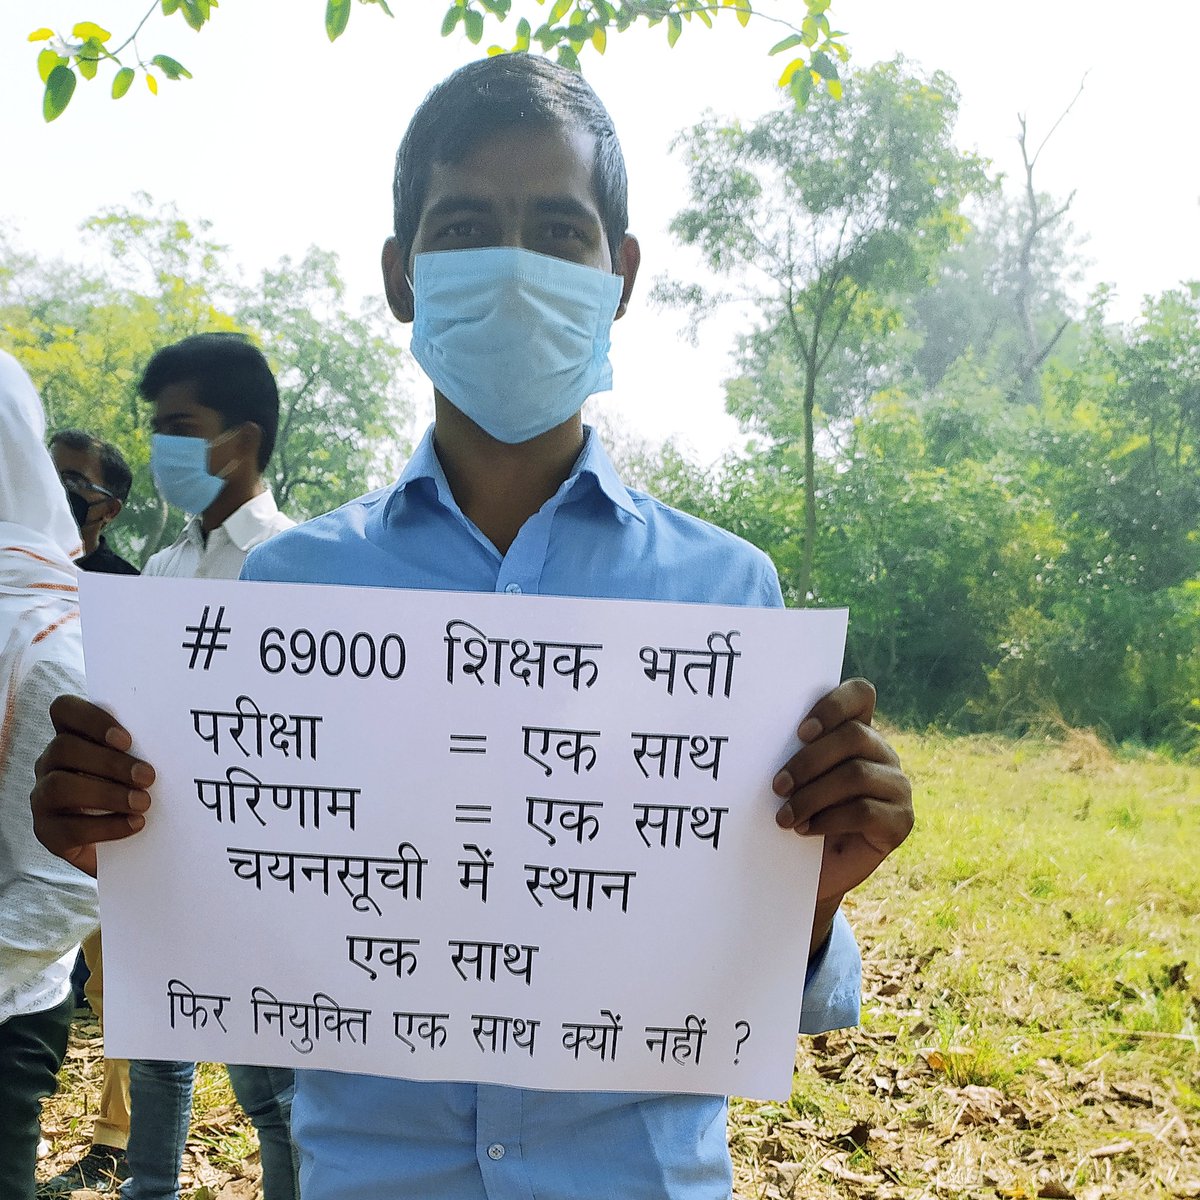 # 69000 शिक्षक भर्ती
परीक्षा = एक साथ
परिणाम = एक साथ
चयनसूची में स्थान
एक साथ
फिर नियुक्ति एक साथ क्यों नहीं ?